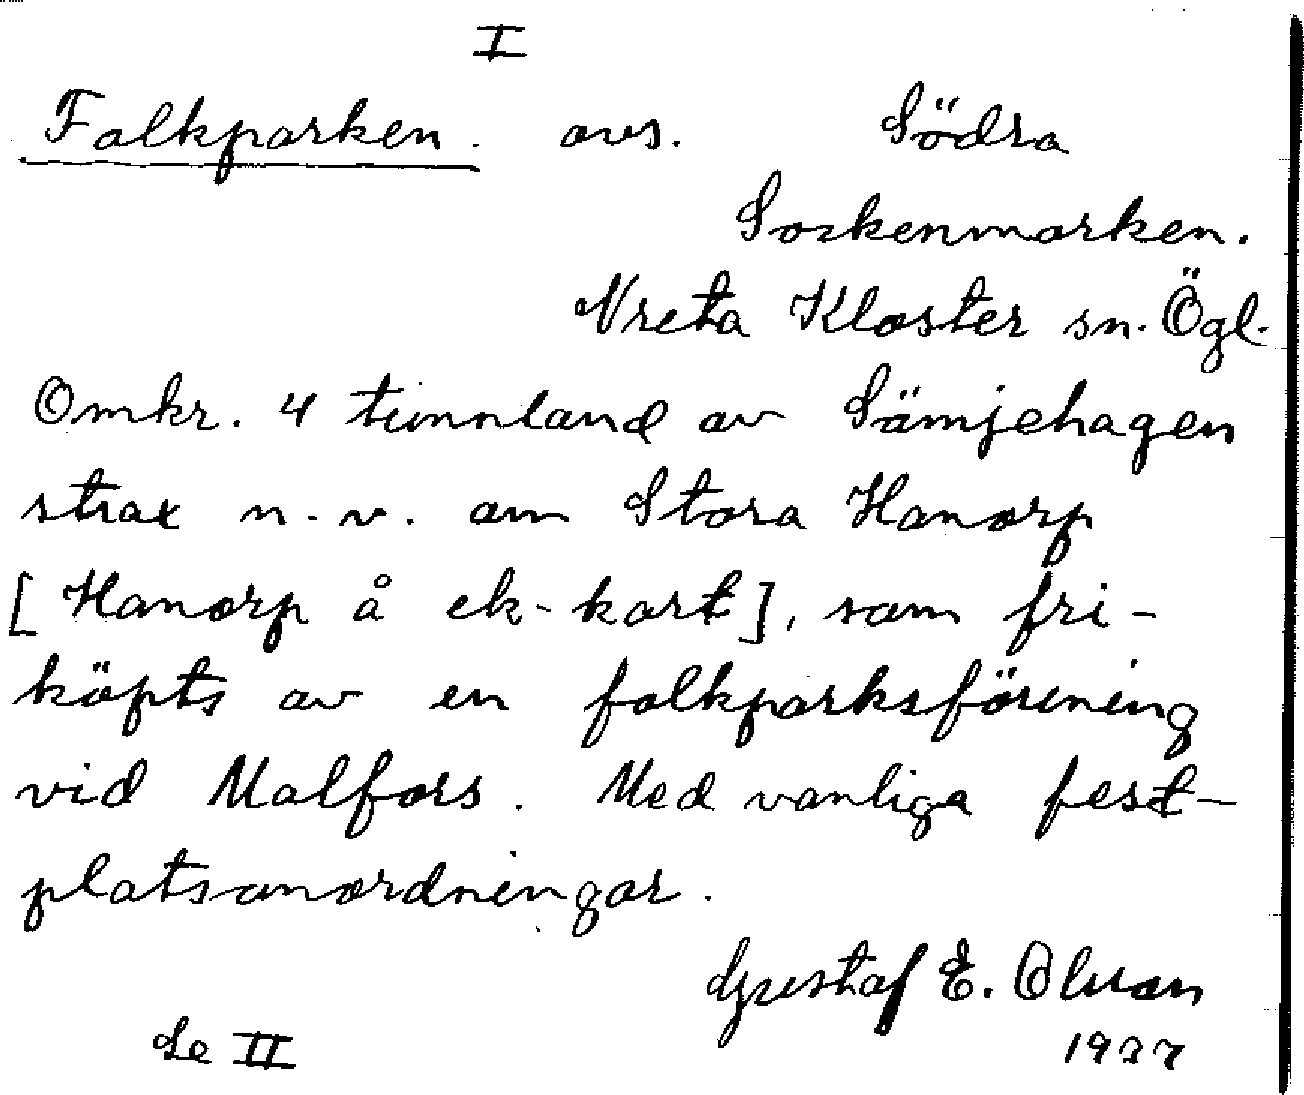 I
Folkparken. avs. Södra
Sockenmarken.
Vreta Kloster sn. Ögl.
Omkr. 4 tunnland av Sämjehagen
strax n.v. om Stora Hanorp
[Hanorp å ek-kart], som fri-
köpts av en folkparksförening
vid Malfors. Med vanliga fest-
platsanordningar.
Gustaf E. Olsson
1937
Se II